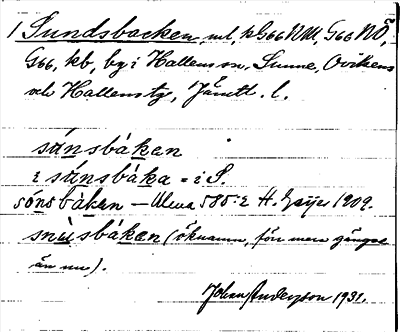 1 Sundsbacken, ml, kG66NM, G66NÖ,
G66, kb, by i Hallens sn, Sunne, Ovikens
och Hallens tg, Jämtl. l.
sánsbáken
i sánsbáka = i S.
sónsbáken – Uleva 585:2 H. Geijer 1909.
snùsbáken (öknamn, förr mera gängse
än nu).
Johan Anderzson 1931.